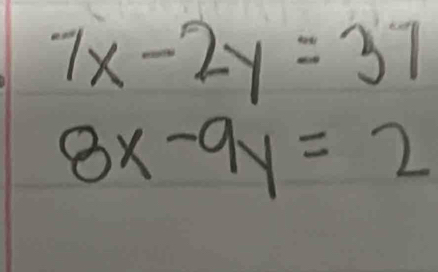 7x - 2y = 37
8x - 9y = 2